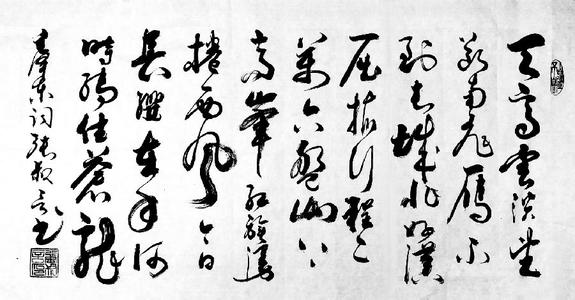 天高雲淡望
断南飛雁不
到長城非好漢
屈指行程二
萬六盤山上
高峰红旗漫
捲西風今日
長纓在手何
時縛住蒼龍
毛澤東詞張叔书